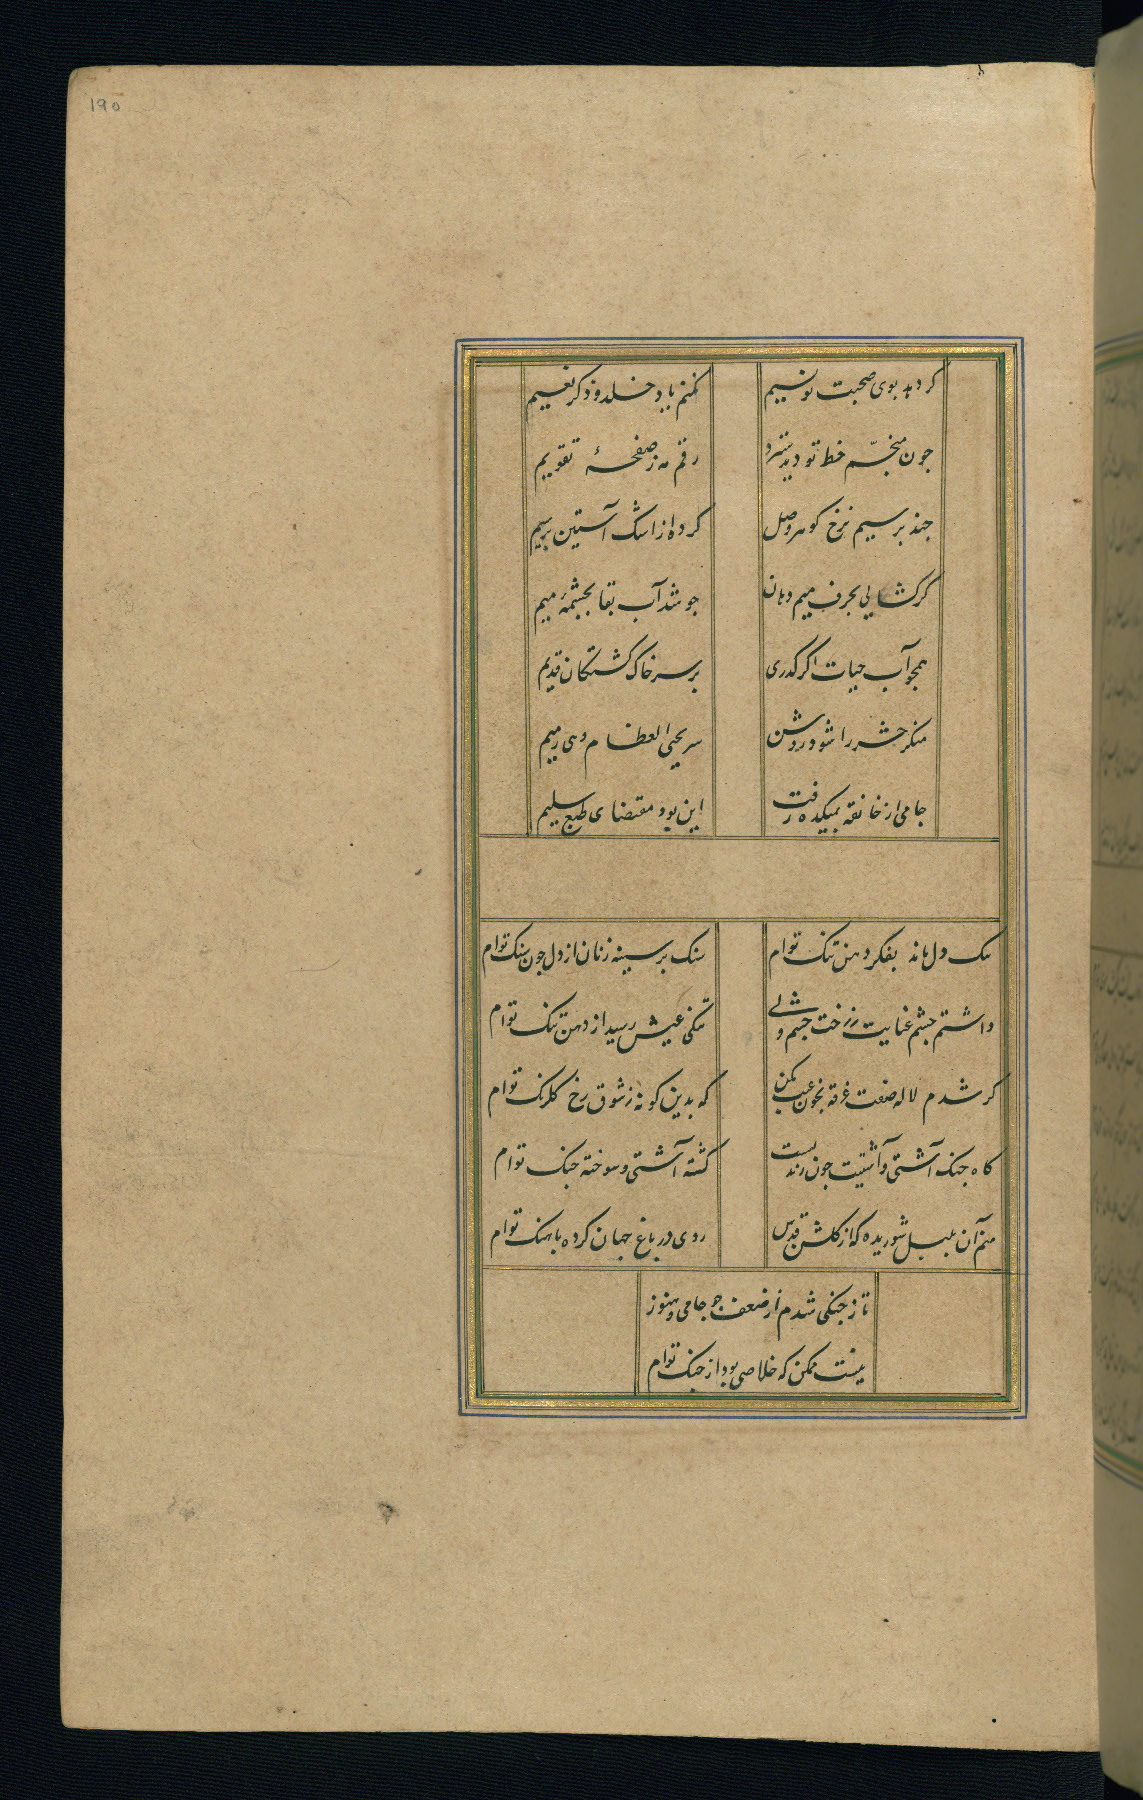 ۱۹۵
کر دهد بوی صحبت تو نسیم کنم یاد خلد و ذکر نعیم
جون منجّم خط تو دید سترد رقم مه ز صفحهٔ تقویم
جند برسیم نرخ کوهر وصل کرده از اشک آستین بر سیم
کر کشایی بحرف میم دهان جوشد آب بقا بجشمهٔ میم
همجو آب حیات اکر کذری بر سر خاک کشتکان قدیم
منکر حشر را شود روشن سر یحیی العظام وهی رمیم
جامی از خانقه بمیکده رفت این بود مقتضای طبع سلیم
تنک دل مانده بفکر دهن تنک توام سنک بر سینه زنان از دل جون سنک توام
داشتم جشم عنایت ز رخت جشم ولی تنکی عیش رسید از دهن تنک توام
کر شدم لاله صفت غرقه بخون عیب مکن که بدین کونه ز شوق رخ کلرنک توام
کاه جنک آشتی و آشتیت جون زند پست کشته آشتی و سوخته جنک توام
منم آن بلبل شوریده که از کلشن قدس روی در باغ جهان کرده باهنک توام
تار جنکی شدم از ضعف جو جامی و هنوز
نیست ممکن که خلاصی بود از جنک توام